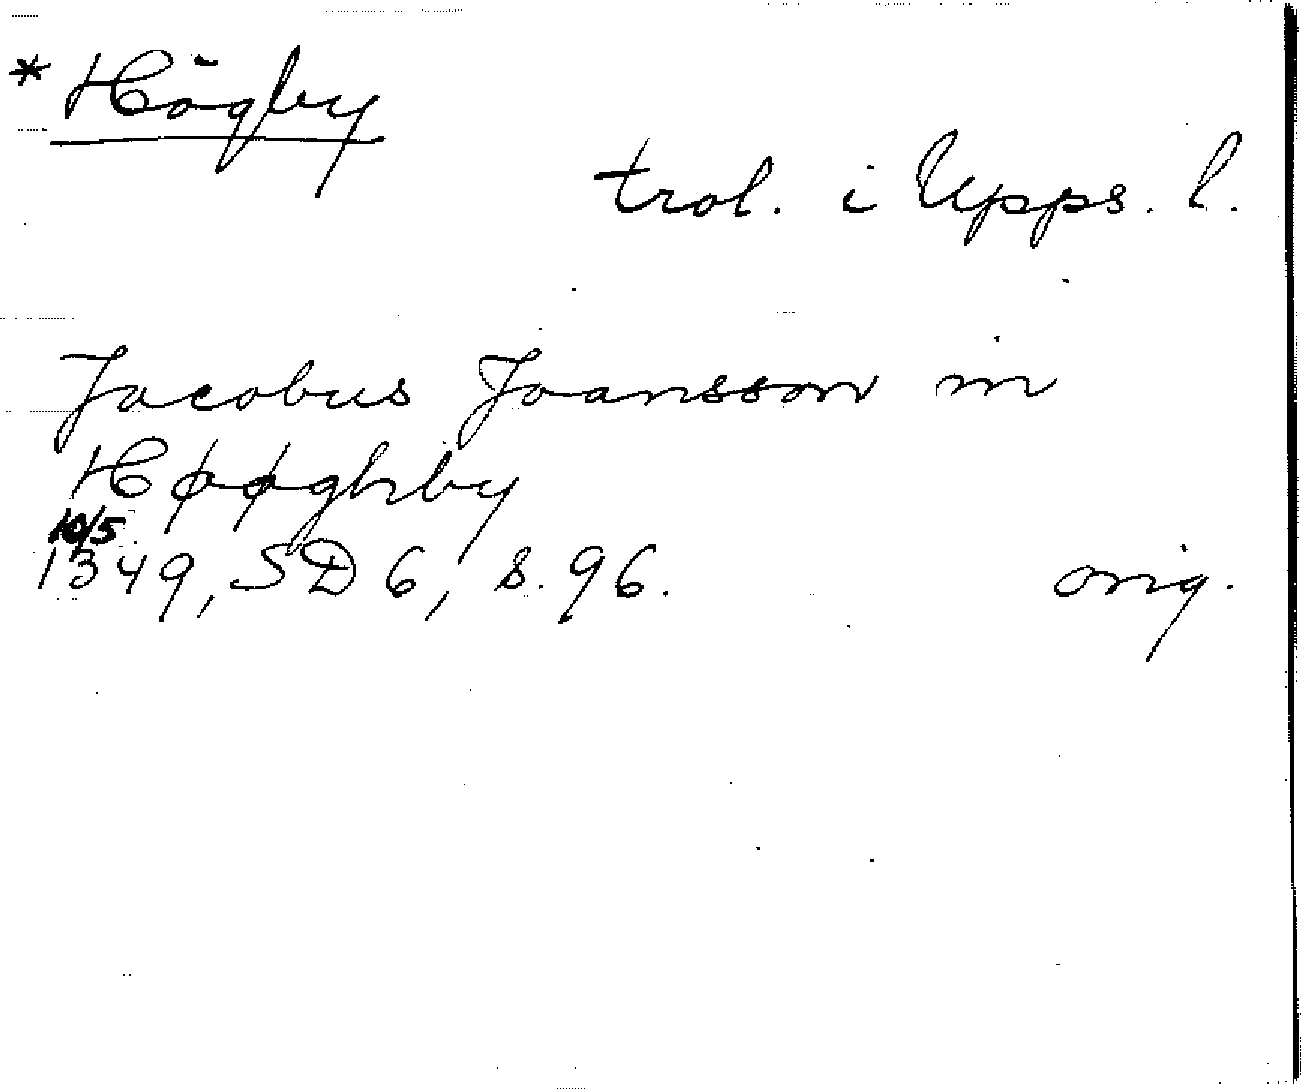 * Högby
trol. i Upps. l.
Jacobus Joansson in
Høøghby
10/5
1349, SD 6, s. 96. orig.